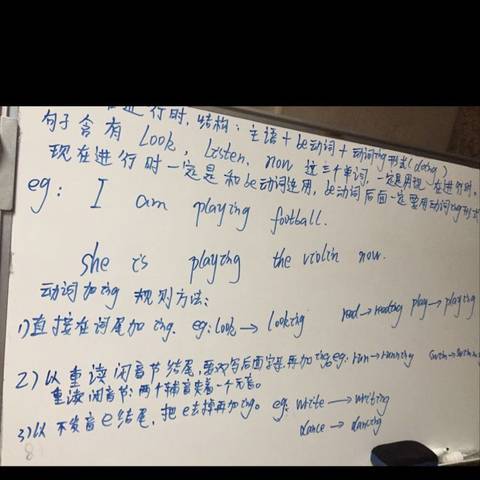 在进行时，结构：主语+be动词+动词ing形式(doing)
句子含有 Look, Listen, now 这三个单词，一定是用现在进行时。
现在进行时一定是和be动词连用，be动词后面一定要用动词ing形式
eg: I am playing football.
she is playing the violin now.
动词加ing 规则方法：
1)直接在词尾加 ing. eg: look → looking read → reading play → playing
2)以重读闭音节结尾，要双写后面字母再加ing. eg: run → running
重读闭音节：两个辅音夹着一个元音。
3)以不发音e结尾，把e去掉再加ing。 eg: write → writing
dance → dancing